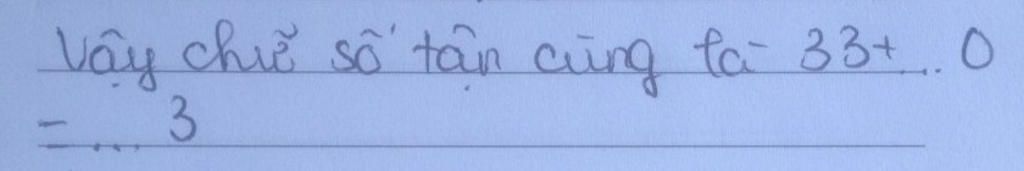 Vậy chữ số tận cùng là 33+...0
=...3